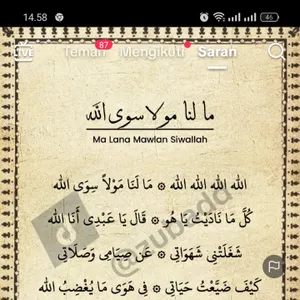 14.58
46
LIVE
Teman 87 Mengikuti Saran
ما لنا مولا سوى الله
Ma Lana Mawlan Siwallah
الله الله الله الله ۞ مَا لَنَا مَوْلاً سِوَى الله
كُلَّ مَا نَادَيْتُ يَا هُو ۞ قَالَ يَا عَبْدِى أَنَا الله
شَغَلَتْنِي شَهَوَاتِي ۞ عَنْ صِيَامِى وَصَلَاتِي
كَيْفَ ضَيَّعْتُ حَيَاتِي ۞ فِي هَوَى مَا يُغْضِبُ الله
@zubadd